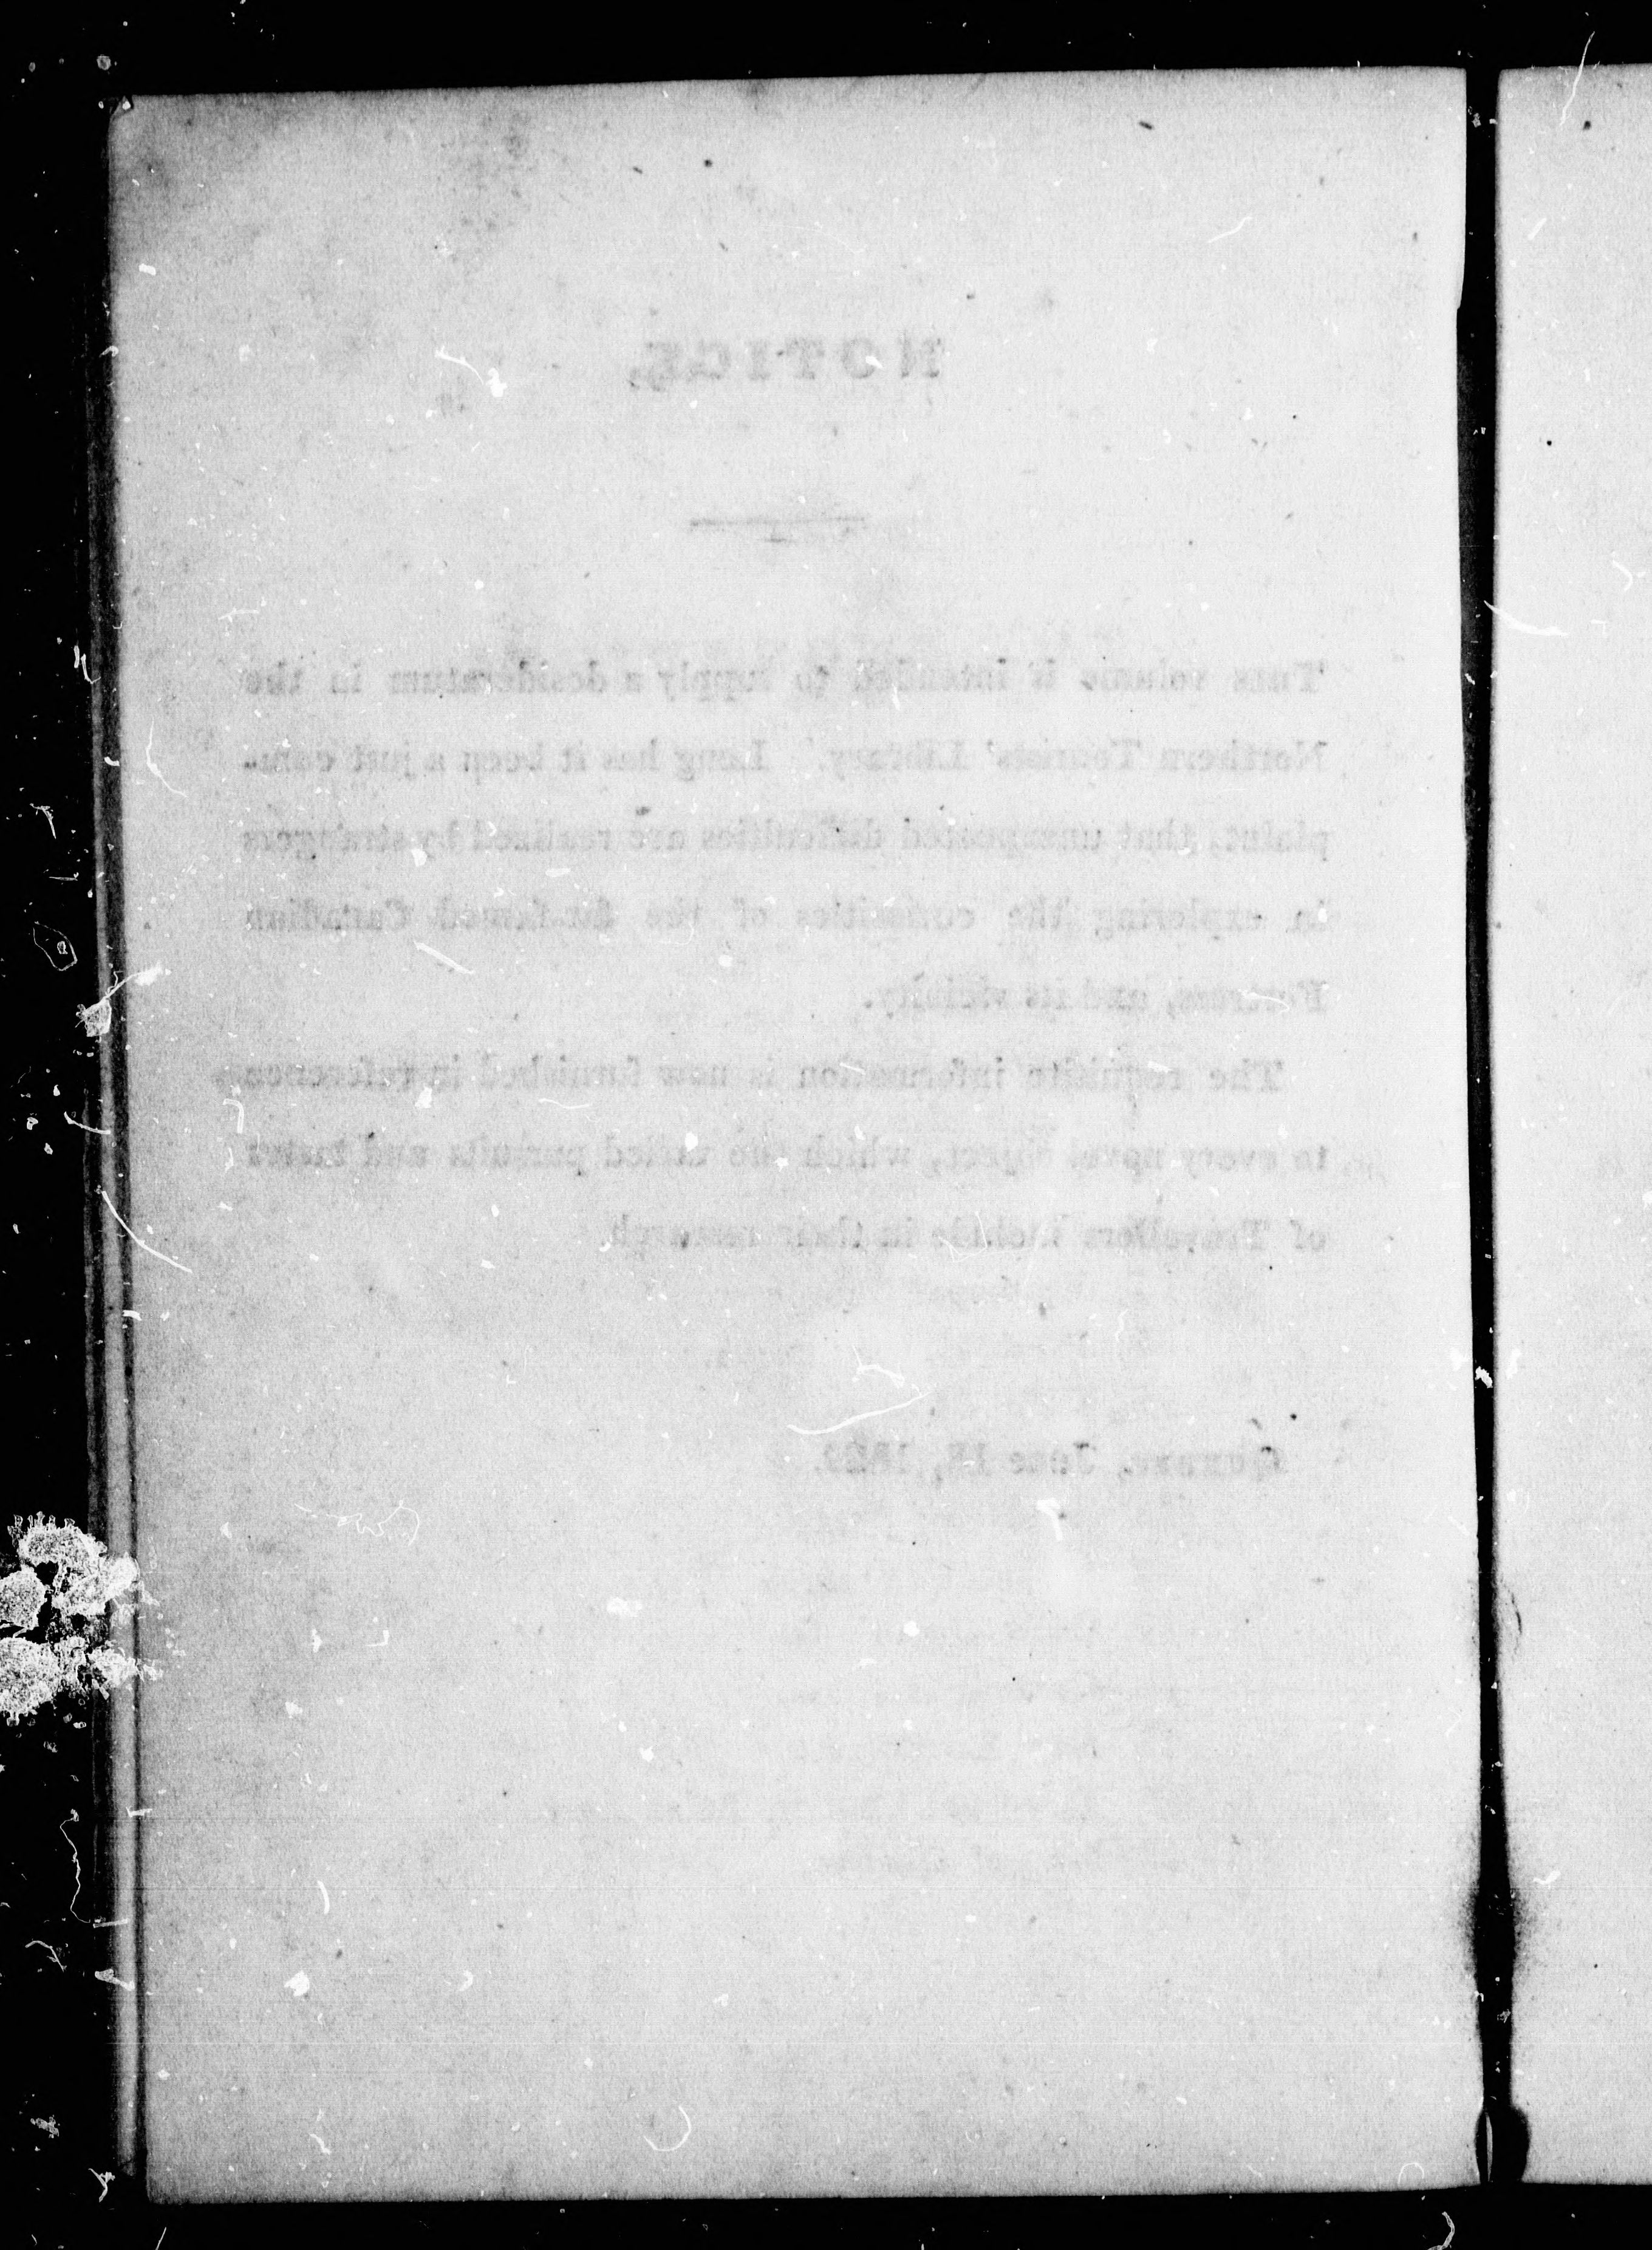 NOTICE.
THIS volume is intended to supply a desideratum in the
Northern Tourists' Library. Long has it been a just com-
plaint, that unexpected difficulties are realized by strangers
in exploring the curiosities of the far-famed Canadian
Fortress, and its vicinity.
The requisite information is now furnished in reference
to every novel object, which the varied pursuits and tastes
of Travellers include in their research.
QUEBEC, June